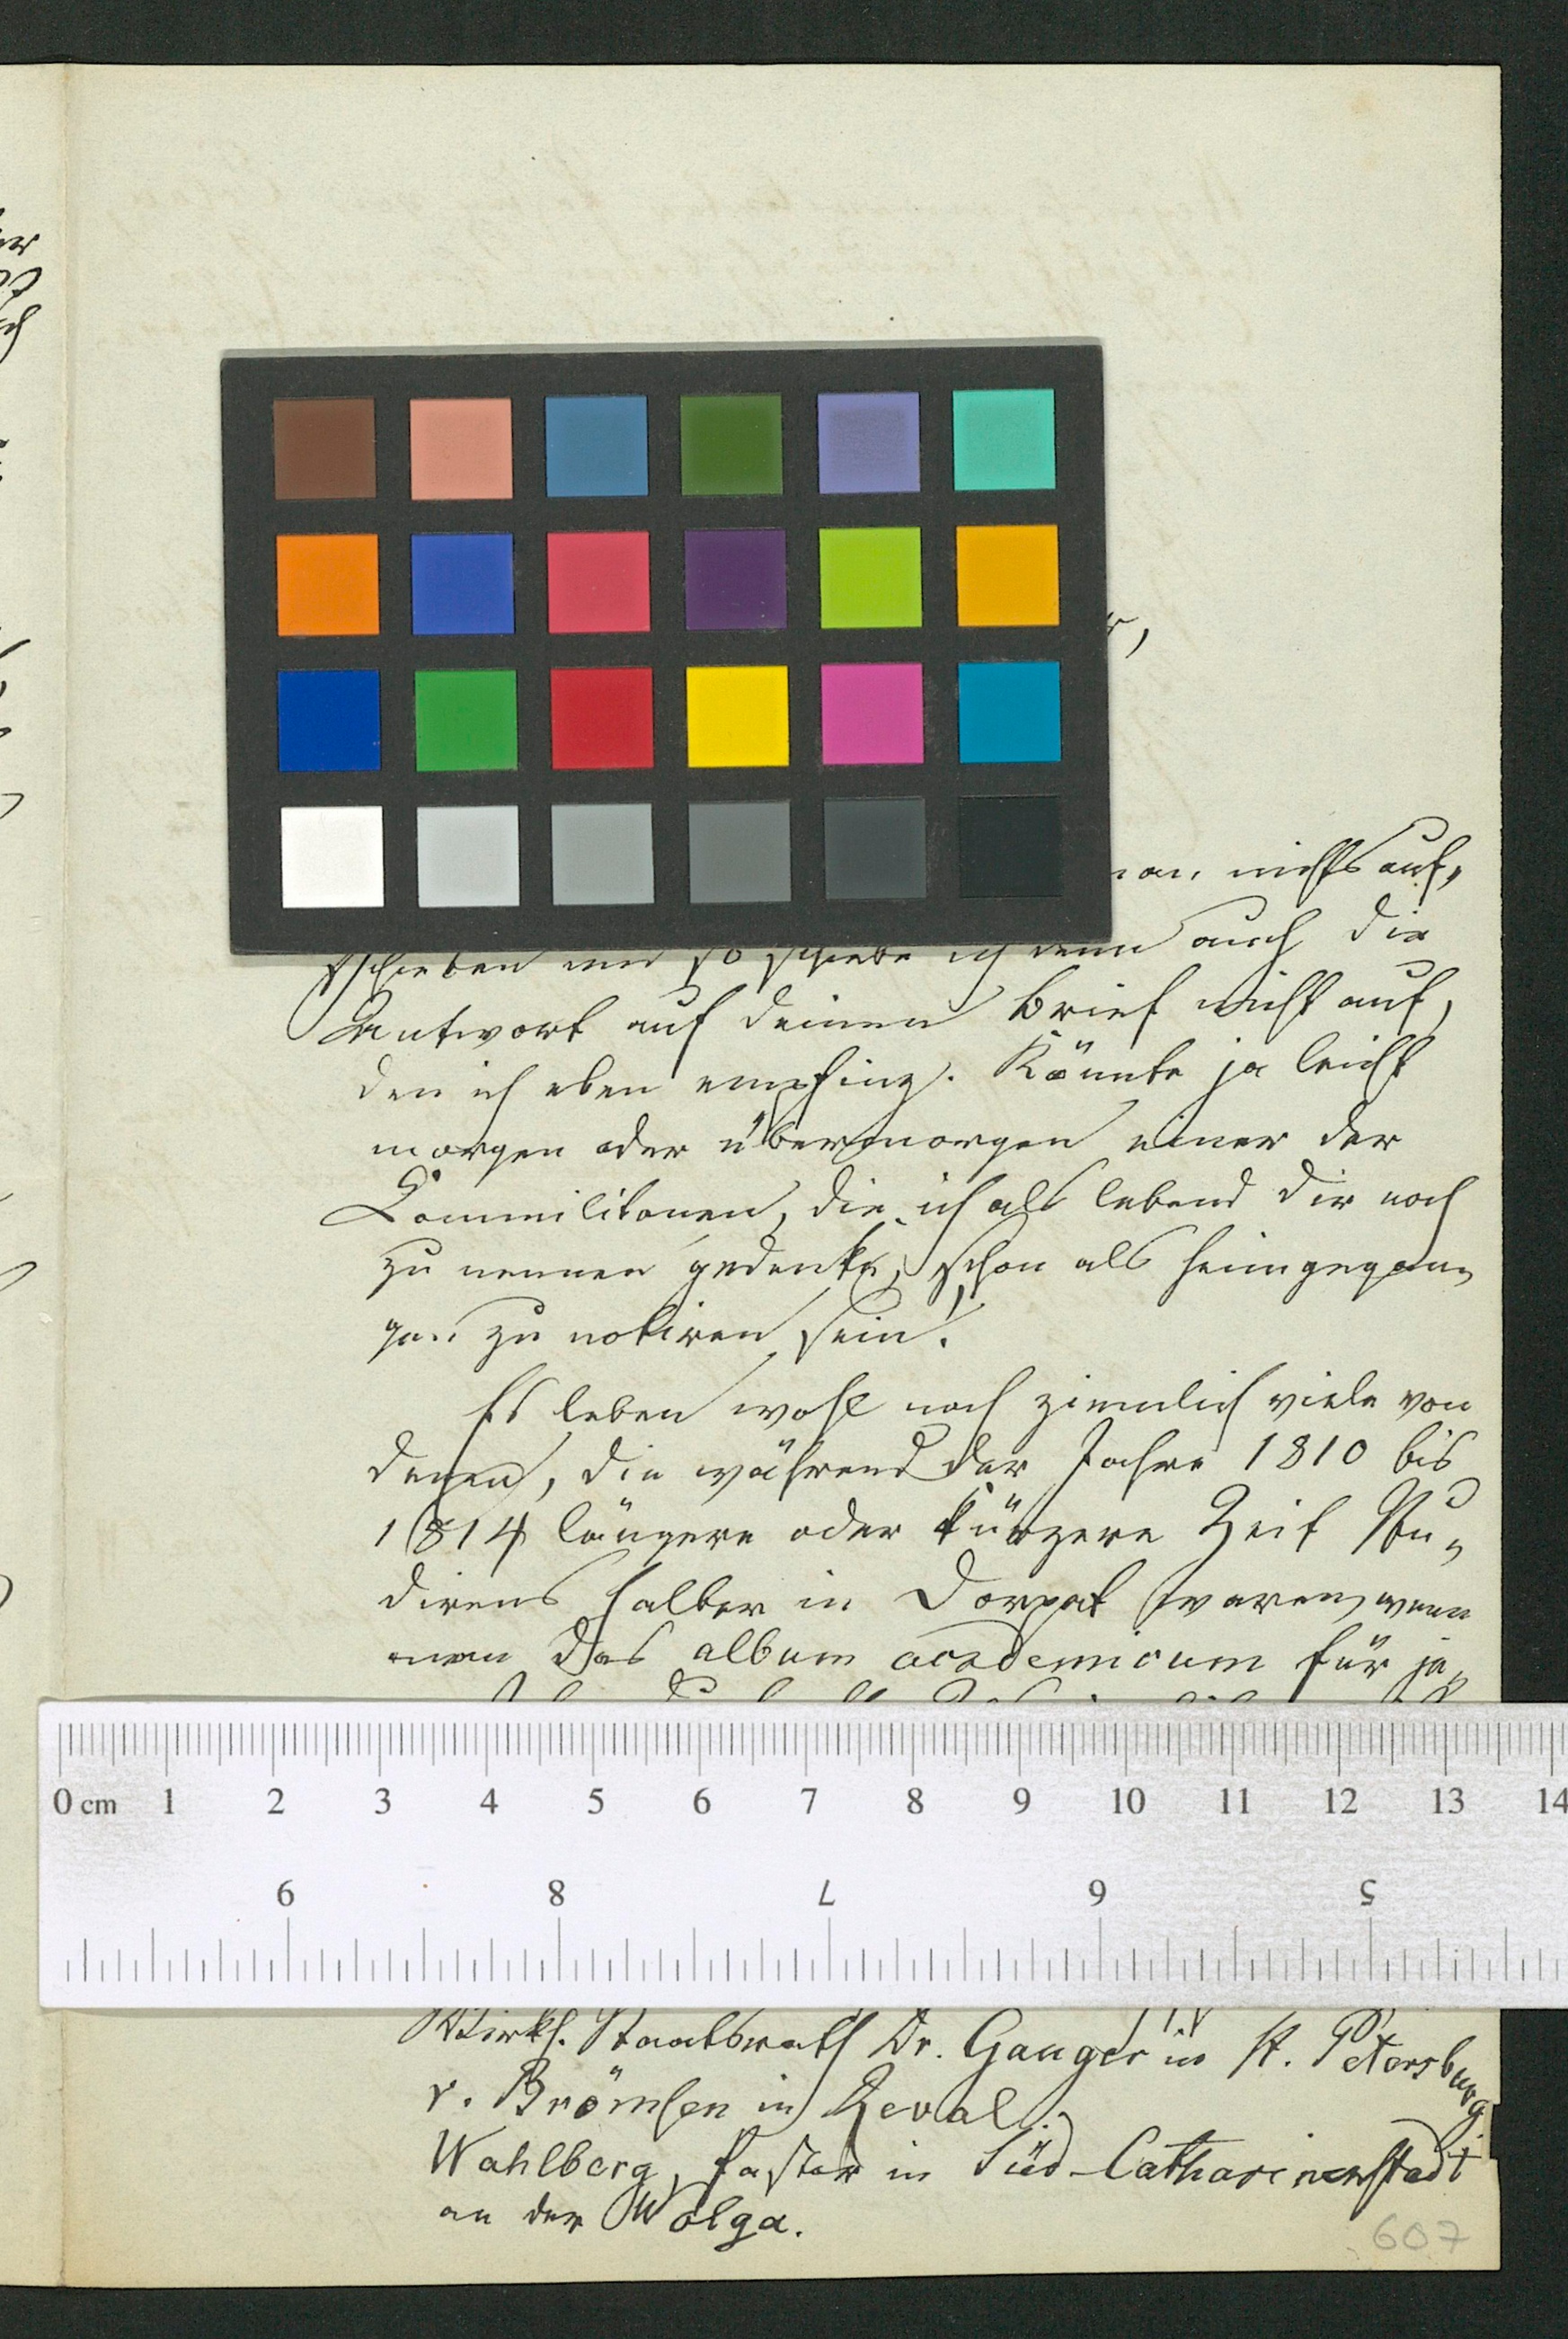 nichts auf,
schieben und so schiebe ich denn auch die
Antwort auf deinen Brief nicht auf,
den ich eben empfing. Könnte ja leicht
morgen oder übermorgen einer der
Commilitonen, die ich als lebend dir noch
zu nennen gedenke, schon als heimgegan-
gen zu notiren sein!
Es leben wohl noch ziemlich viele von
denen, die während der Jahre 1810 bis
1814 längere oder kürzere Zeit Stu-
direns halber in Dorpat waren, wenn
man das album academicum für je-
0 cm 1 2 3 4 5 6 7 8 9 10 11 12 13 14
9 8 7 6 5
Wirkl. Staatsrath Dr. Gauger in St. Petersburg
v. Brömsen in Reval.
Wahlberg, Pastor in Süd-Catharinenstadt
an der Wolga.
607